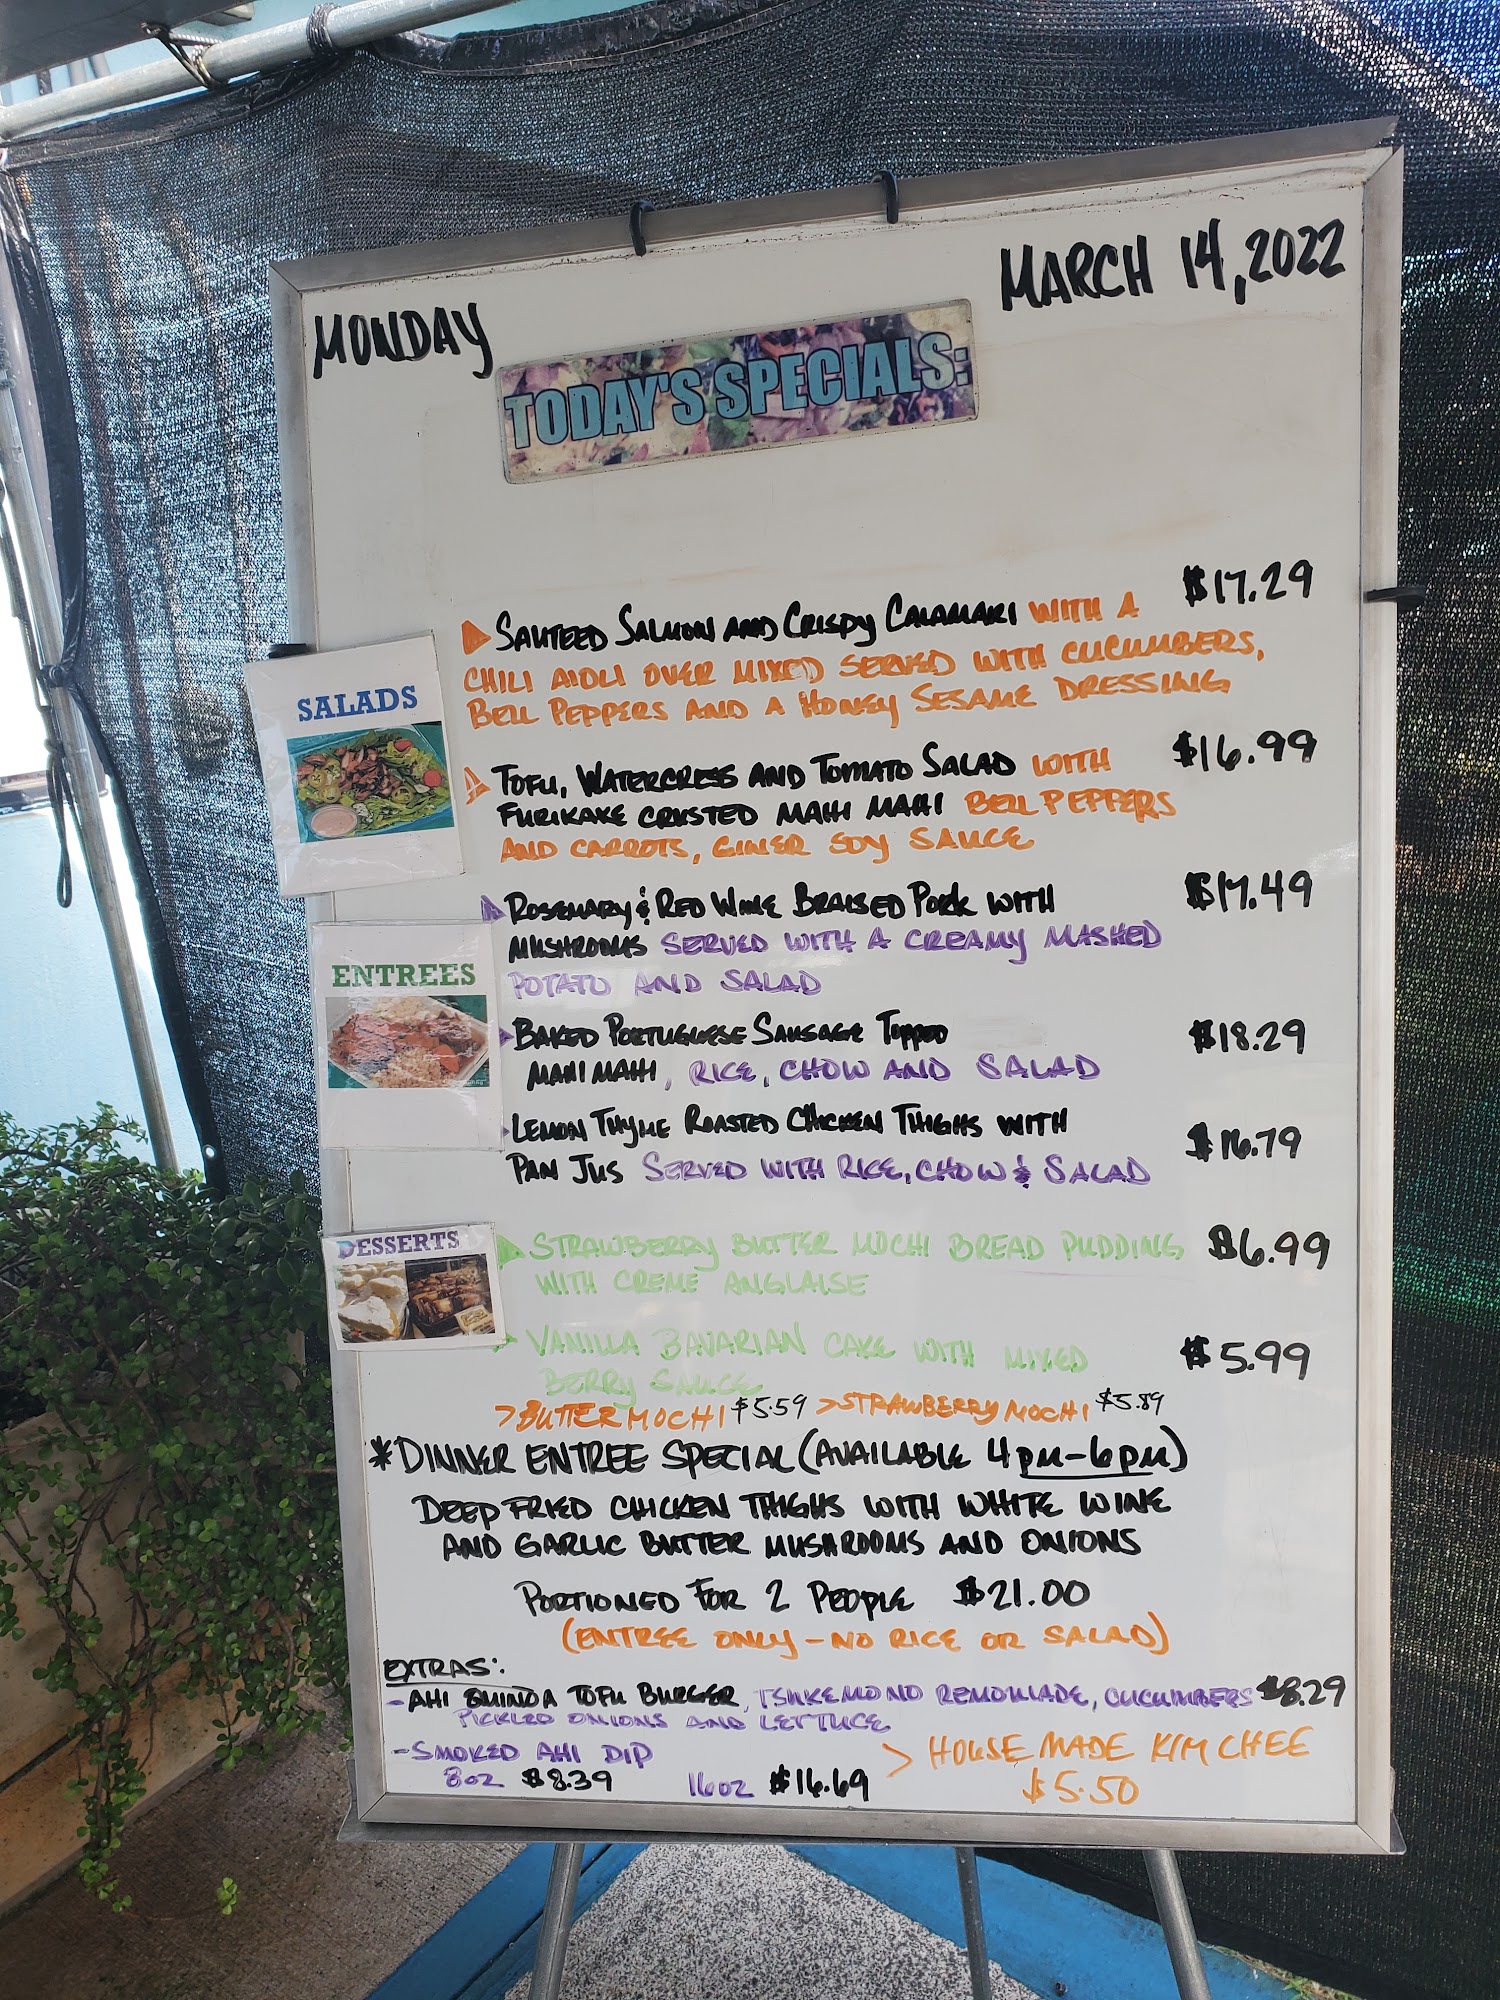 MONDAY
MARCH 14, 2022
TODAY'S SPECIALS:
SALADS
SAUTEED SALMON AND CRISPY CALAMARI WITH A $17.29
CHILI AIOLI OVER MIXED SERVED WITH CUCUMBERS,
BELL PEPPERS AND A HONEY SESAME DRESSING
TOFU, WATERCRESS AND TOMATO SALAD WITH $16.99
FURIKAKE CRUSTED MAHI MAHI BELL PEPPERS
AND CARROTS, GINER SOY SAUCE
ENTREES
ROSEMARY & RED WINE BRAISED PORK WITH $17.49
MUSHROOMS SERVED WITH A CREAMY MASHED
POTATO AND SALAD
BAKED PORTUGUESE SAUSAGE TOPPED $18.29
MAHI MAHI, RICE, CHOW AND SALAD
LEMON THYME ROASTED CHICKEN THIGHS WITH $16.79
PAN JUS SERVED WITH RICE, CHOW & SALAD
DESSERTS
STRAWBERRY BUTTER MOCHI BREAD PUDDING $6.99
WITH CREME ANGLAISE
VANILLA BAVARIAN CAKE WITH MIXED $5.99
BERRY SAUCE
>BUTTER MOCHI $5.59 >STRAWBERRY MOCHI $5.89
*DINNER ENTREE SPECIAL (AVAILABLE 4PM-6PM)
DEEP FRIED CHICKEN THIGHS WITH WHITE WINE
AND GARLIC BUTTER MUSHROOMS AND ONIONS
PORTIONED FOR 2 PEOPLE $21.00
(ENTREE ONLY - NO RICE OR SALAD)
EXTRAS:
-AHI QUINOA TOFU BURGER, TSUKEMONO REMOULADE, CUCUMBERS $8.29
PICKLED ONIONS AND LETTUCE
-SMOKED AHI DIP
8oz $8.39 16oz $16.69
> HOUSE MADE KIM CHEE
$5.50